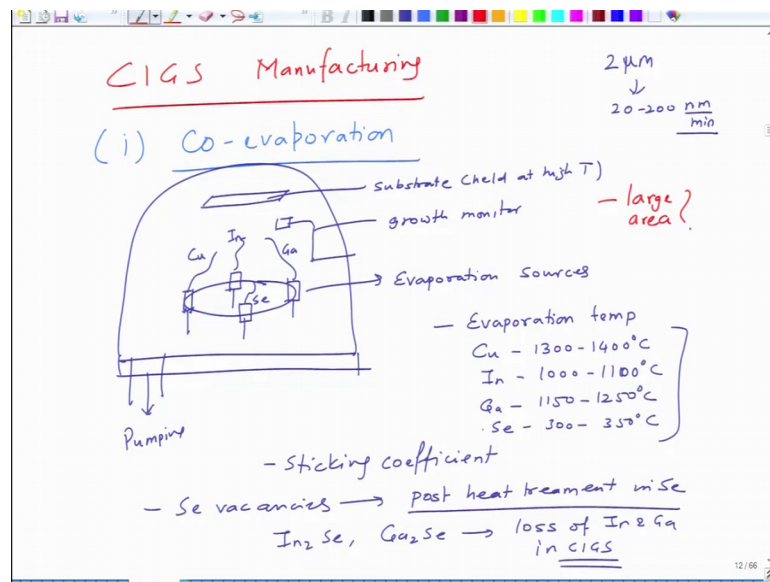 CIGS Manufacturing
2 μm
↓
20-200 nm/min
(i) Co-evaporation
substrate (held at high T)
growth monitor
- large area?
Cu
In
Ga
Se
→ Evaporation sources
- Evaporation temp
Cu - 1300 - 1400°C
In - 1000 - 1100°C
Ga - 1150 - 1250°C
Se - 300 - 350°C
Pumping
- Sticking coefficient
- Se vacancies → post heat treament in Se
In2Se, Ga2Se → loss of In & Ga
in CIGS
12 / 66